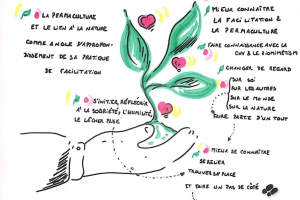 LA PERMACULTURE
ET LE LIEN À LA NATURE
COMME ANGLE D'APPROFON-
DISSEMENT DE SA PRATIQUE
DE FACILITATION
S'INITIER, RÉFLÉCHIR
À LA SOBRIÉTÉ, L'HUMILITÉ,
LE LÂCHER PRISE
MIEUX CONNAÎTRE
LA FACILITATION &
LA PERMACULTURE
FAIRE CONNAISSANCE AVEC LA
CNV & LE BIOMIMÉTISME
CHANGER DE REGARD
SUR SOI
SUR LES AUTRES
SUR LE MONDE
SUR LA NATURE
FAIRE PARTIE D'UN TOUT
MIEUX SE CONNAÎTRE
SE RELIER
TROUVER SA PLACE
ET FAIRE UN PAS DE CÔTÉ